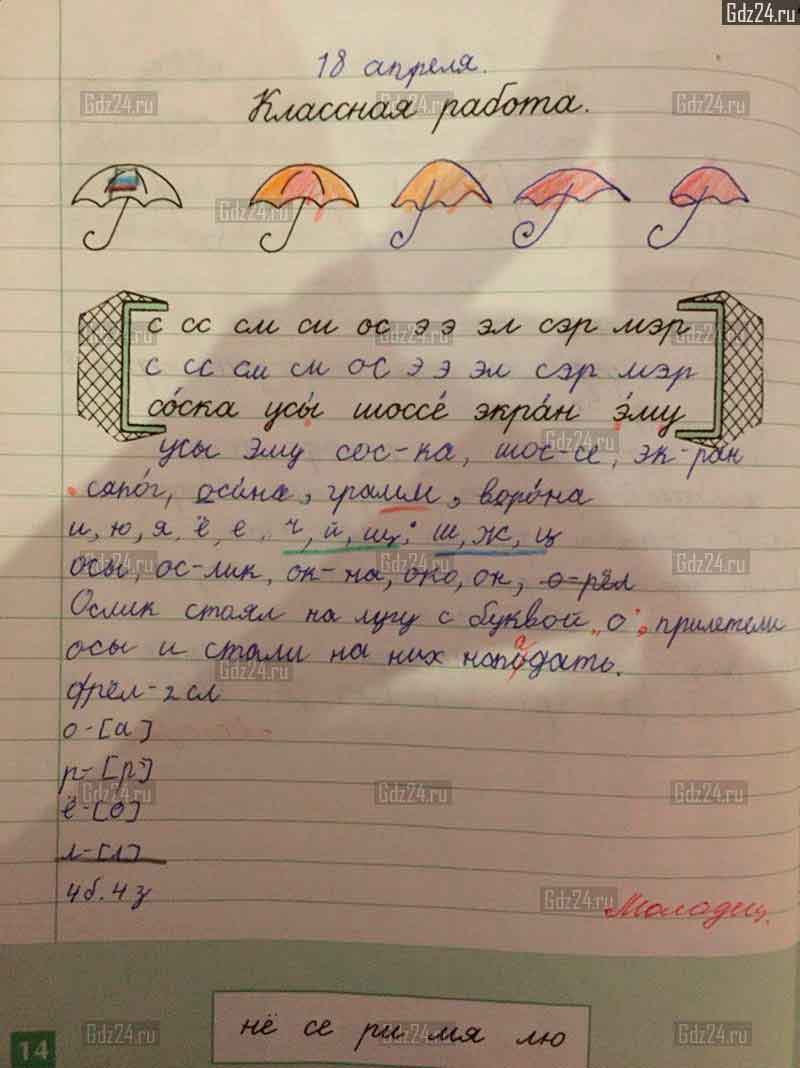 Gdz24.ru
18 апреля.
Классная работа.
с сс см си ос э э эл сэр мэр
с сс см си ос э э эл сэр мэр
со́ска усы́ шоссе́ экра́н э́му
усы эму сос-ка, шос-се, эк-ран
сапо́г, оси́на, грамм, воро́на
и, ю, я, ё, е, ч, й, щ; ш, ж, ц
осы, ос-лик, ок-на, око, он, о-рёл
Ослик стоял на лугу с буквой „о", прилетели
осы и стали на них нападать.
Орёл - 2 сл
о - [а]
р - [р']
ё - [о]
л - [л]
4 б. 4 з
Молодец.
14
нё се ри мя лю